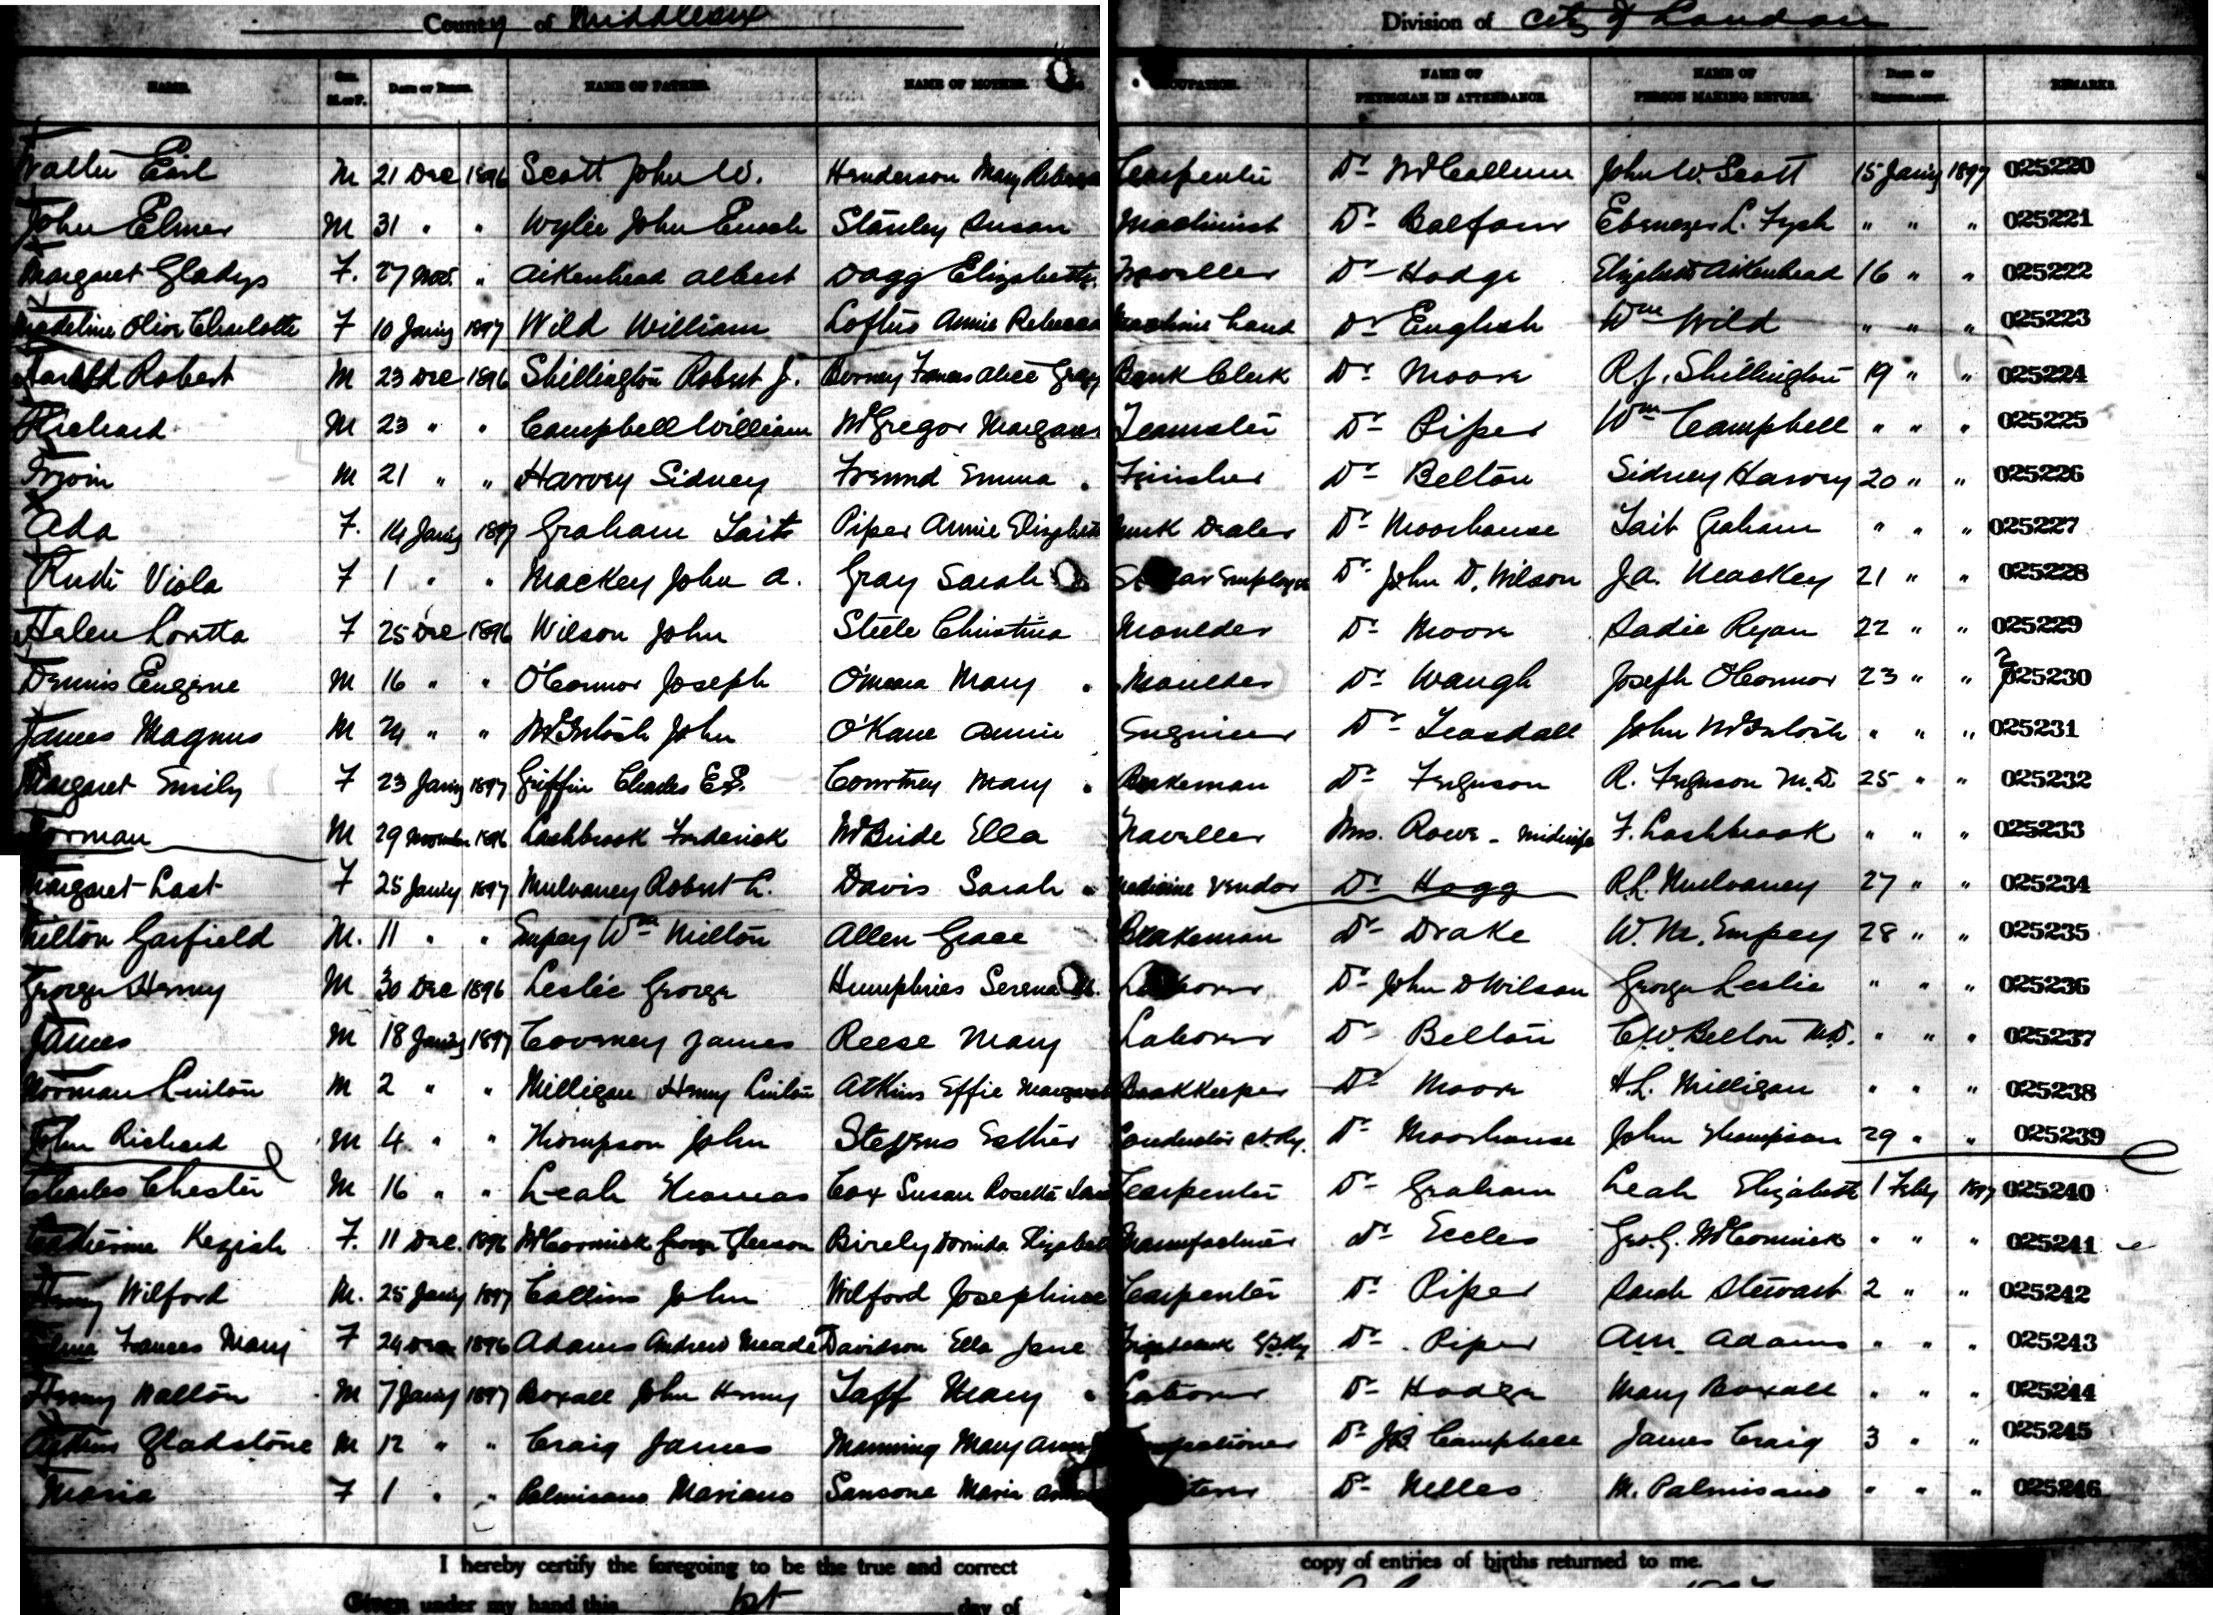 County of Middlesex Division of City of London
NAME. Sex. M. or F. Date of Birth. NAME OF FATHER. NAME OF MOTHER. OCCUPATION. NAME OF PHYSICIAN IN ATTENDANCE. NAME OF PERSON MAKING RETURN. Date of Registration. REMARKS.
Walter Earl M 21 Dec 1896 Scott John W. Henderson Mary Rebecca Carpenter Dr McCallum John W. Scott 15 Jany 1897 025220
John Elmer M 31 " " Wylie John Enoch Stanley Susan Machinist Dr Balfour Ebenezer L. Fysh " " " 025221
Margaret Gladys F. 27 Nov. " Aikenhead Albert Dagg Elizabeth Traveller Dr Hodge Elizabeth Aikenhead 16 " " 025222
Madeline Olive Charlotte F 10 Jany 1897 Wild William Loftus Annie Rebecca Machine hand Dr English Wm Wild " " " 025223
Harold Robert M 23 Dec 1896 Shillington Robert J. Frances Alice Bank Clerk Dr Moore R.J. Shillington 19 " " 025224
Richard M 23 " " Campbell William McGregor Margaret Teamster Dr Piper Wm Campbell " " " 025225
M 21 " " Harvey Sidney Freund Emma Finisher Dr Belton Sidney Harvey 20 " " 025226
Ada F. 14 Jany 1897 Graham Tait Piper Annie Elizabeth Junk Dealer Dr Moorhouse Tait Graham " " " 025227
Ruth Viola F 1 " " Mackey John A. Gray Sarah Employee Dr John D. Wilson J.A. Mackey 21 " " 025228
Helen Loretta F 25 Dec 1896 Wilson John Steele Christina Moulder Dr Moore Sadie Ryan 22 " " 025229
Dennis Eugene M 16 " " O'Connor Joseph O'Meara Mary Moulder Dr Waugh Joseph O'Connor 23 " " 025230
James Magnus M 24 " " McIntosh John O'Kane Annie Engineer Dr Teasdall John McIntosh " " " 025231
Margaret Emily F 23 Jany 1897 Griffin Charles E.S. Courtney Mary Brakeman Dr Ferguson R. Ferguson M.D. 25 " " 025232
Norman M 29 November 1896 Lashbrook Frederick McBride Ella Traveller Mrs. Rowe - Midwife F. Lashbrook " " " 025233
Margaret Last F 25 Jany 1897 Mulvaney Robert L. Davis Sarah Medicine Vendor Dr Hogg R.L. Mulvaney 27 " " 025234
Milton Garfield M. 11 " " Empey Wm Milton Allen Grace Brakeman Dr Drake W. M. Empey 28 " " 025235
George Henry M 30 Dec 1896 Leslie George Humphries Serena Laborer Dr John D Wilson George Leslie " " " 025236
James M 18 Jany 1897 Coverney James Reese Mary Laborer Dr Belton C.W. Belton M.D. " " " 025237
Norman Linton M 2 " " Milligan Henry Linton Atkins Effie Margaret Bookkeeper Dr Moore H.L. Milligan " " " 025238
John Richard M 4 " " Thompson John Stevens Esther Conductor St. Ry. Dr Moorhouse John Thompson 29 " " 025239
Charles Chester M 16 " " Leah Thomas Cox Susan Rosetta Carpenter Dr Graham Leah Elizabeth 1 Feby 1897 025240
Catherine Keziah F. 11 Dec. 1896 McCormick George Gleeson Birely Dorinda Elizabeth Manufacturer Dr Eccles Geo. G. McCormick " " " 025241
Henry Wilford M. 25 Jany 1897 Collins John Wilford Josephine Carpenter Dr Piper Sarah Stewart 2 " " 025242
Frances Mary F 24 Dec 1896 Adams Andrew Meade Davidson Ella Jane Dr Piper A.M. Adams " " " 025243
Henry Walton M 7 Jany 1897 Boxall John Henry Taff Mary Laborer Dr Hodge Mary Boxall " " " 025244
Gladstone M 12 " " Craig James Manning Mary Ann Dr Campbell James Craig 3 " " 025245
Maria F 1 " " Palmisano Mariano Sansone Maria Dr Nelles M. Palmisano " " " 025246
I hereby certify the foregoing to be the true and correct copy of entries of births returned to me.
Given under my hand this 1st day of